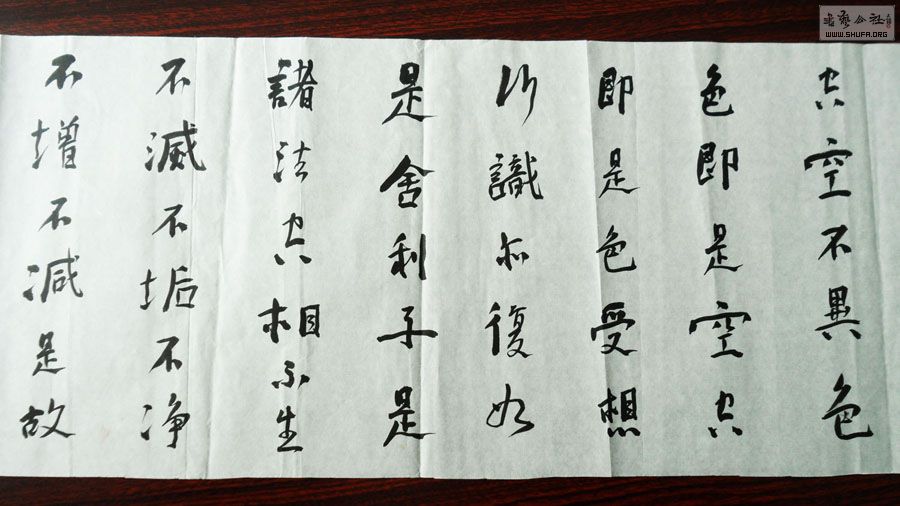 空空不異色
色即是空空
即是色受想
行識亦復如
是舍利子是
諸法空相不生
不滅不垢不净
不增不減是故
書藝公社
WWW.SHUFA.ORG